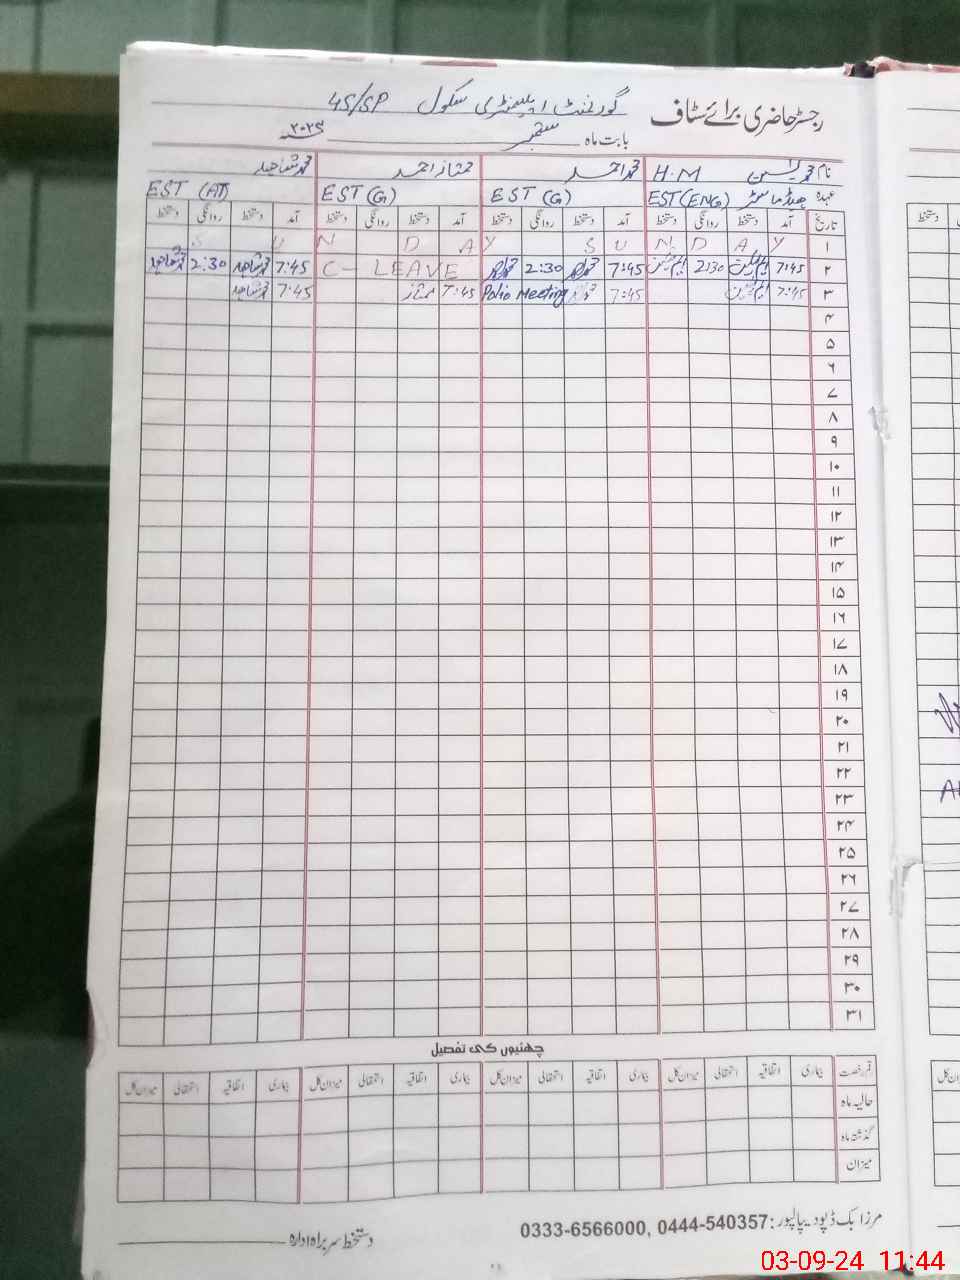 رجسٹر حاضری برائے سٹاف گورنمنٹ ایلیمنٹری سکول 45/SP
بابت ماہ ستمبر
نام محمد یٰسین H.M محمد احمد ممتاز احمد محمد شاہد
عہدہ ہیڈ ماسٹر EST (ENG) EST (G) EST (G) EST (AT)
تاریخ آمد دستخط روانگی دستخط آمد دستخط روانگی دستخط آمد دستخط روانگی دستخط آمد دستخط روانگی دستخط
۱ S U N D A Y S U N D A Y
۲ 7:45 2:30 7:45 2:30 C- LEAVE 7:45 محمد شاہد 2:30 محمد شاہد
۳ 7:45 7:45 Polio Meeting 7:45 ممتاز 7:45 محمد شاہد
۴
۵
۶
۷
۸
۹
۱۰
۱۱
۱۲
۱۳
۱۴
۱۵
۱۶
۱۷
۱۸
۱۹
۲۰
۲۱
۲۲
۲۳
۲۴
۲۵
۲۶
۲۷
۲۸
۲۹
۳۰
۳۱
چھٹیوں کی تفصیل
قسم رخصت بیماری اتفاقیہ استحقاقی میزان کل بیماری اتفاقیہ استحقاقی میزان کل بیماری اتفاقیہ استحقاقی میزان کل بیماری اتفاقیہ استحقاقی میزان کل
حالیہ ماہ
گذشتہ ماہ
میزان
مرزا بک ڈپو دیپالپور: 0333-6566000, 0444-540357
دستخط سربراہ ادارہ
03-09-24 11:44